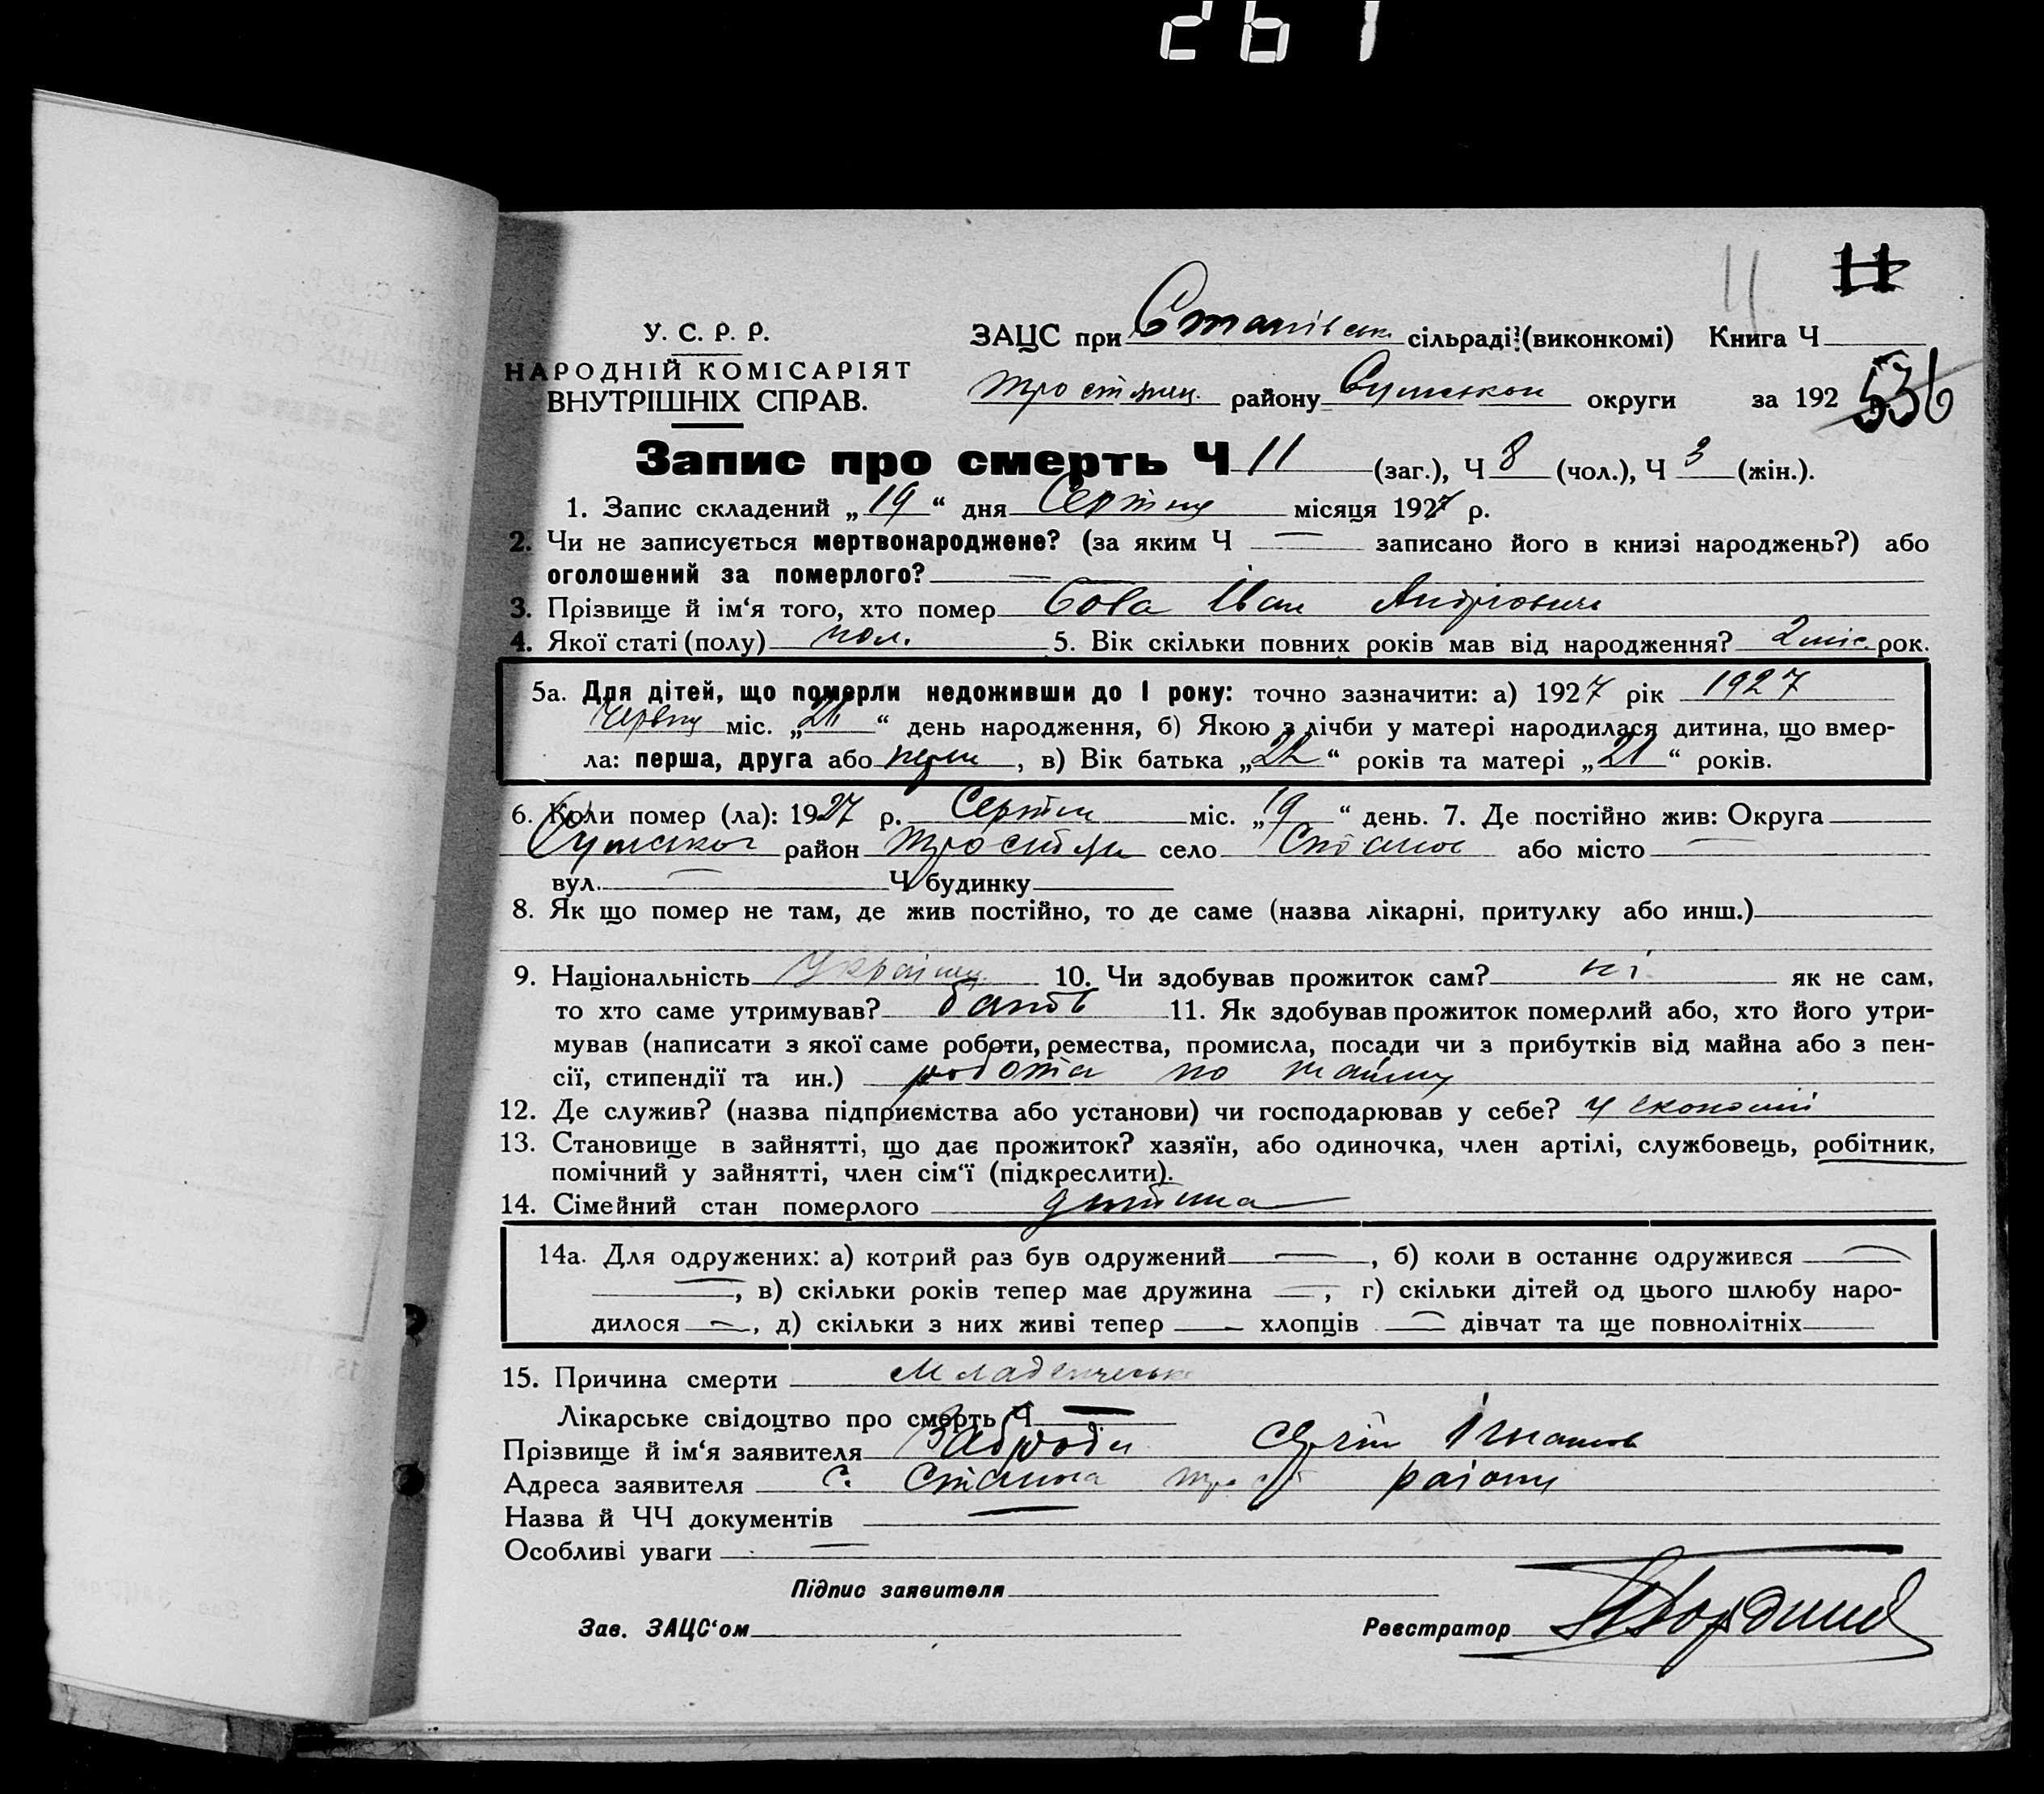 261
11
11
У. С. Р. Р.
НАРОДНІЙ КОМІСАРІЯТ
ВНУТРІШНІХ СПРАВ.
ЗАЦС при Станівськ. сільраді (виконкомі) Книга Ч
Тростянец. району Сумської округи за 192
536
Запис про смерть Ч 11 (заг.), Ч 8 (чол.), Ч 3 (жін.).
1. Запис складений „19“ дня Серпня місяця 1927 р.
2. Чи не записується мертвонароджене? (за яким Ч — записано його в книзі народжень?) або
оголошений за померлого? —
3. Прізвище й ім‘я того, хто помер Сова Іван Андрієвич
4. Якої статі (полу) чол. 5. Вік скільки повних років мав від народження? 2 міс. рок.
5а. Для дітей, що померли недоживши до 1 року: точно зазначити: а) 1927 рік 1927
Червня міс. „ “ день народження, б) Якою з лічби у матері народилася дитина, що вмер-
ла: перша, друга або перш , в) Вік батька „ “ років та матері „21“ років.
6. Коли помер (ла): 1927 р. Серпня міс. „19“ день. 7. Де постійно жив: Округа
Сумської район Тростян село Станове або місто —
вул. — Ч будинку
8. Як що помер не там, де жив постійно, то де саме (назва лікарні, притулку або инш.)
9. Національність Українец 10. Чи здобував прожиток сам? ні як не сам,
то хто саме утримував? батьк 11. Як здобував прожиток померлий або, хто його утри-
мував (написати з якої саме роботи, ремества, промисла, посади чи з прибутків від майна або з пен-
сії, стипендії та ин.) робота по найму
12. Де служив? (назва підприємства або установи) чи господарював у себе? у економії
13. Становище в зайнятті, що дає прожиток? хазяїн, або одиночка, член артілі, службовець, робітник,
помічний у зайнятті, член сім‘ї (підкреслити).
14. Сімейний стан померлого дитина
14а. Для одружених: а) котрий раз був одружений — , б) коли в останнє одружився —
— , в) скільки років тепер має дружина — , г) скільки дітей од цього шлюбу наро-
дилося — , д) скільки з них живі тепер — хлопців — дівчат та ще повнолітніх
15. Причина смерти Младенческ
Лікарське свідоцтво про смерть Ч —
Прізвище й ім‘я заявителя Сергій
Адреса заявителя с. Станова Трост району
Назва й ЧЧ документів —
Особливі уваги —
Підпис заявителя
Зав. ЗАЦС‘ом Реєстратор